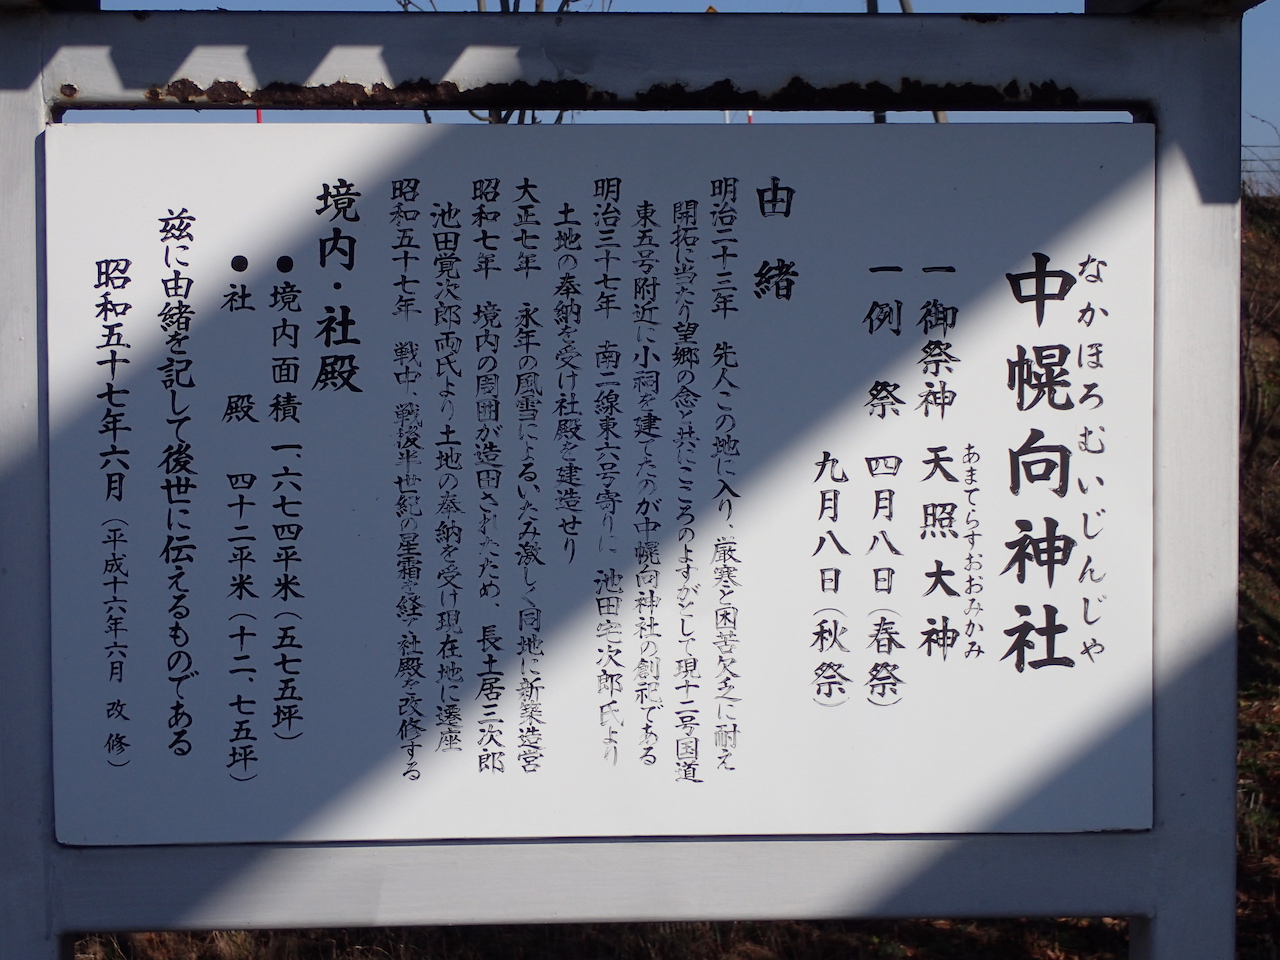 なかほろむいじんじゃ
中幌向神社
一 御祭神 天照大神
あまてらすおおみかみ
一 例 祭 四月八日(春祭)
九月八日(秋祭)
由緒
明治二十三年 先人この地に入り、厳寒と困苦欠乏に耐え
開拓に当たり望郷の念と共にこころのよすがとして現十二号国道
東五号附近に小祠を建てたのが中幌向神社の創祀である
明治三十七年 南二線東六号寄りに 池田宅次郎氏より
土地の奉納を受け社殿を建造せり
大正七年 永年の風雪によるいたみ激しく同地に新築造営
昭和七年 境内の周囲が造田されたため、長土居三次郎
池田覚次郎両氏より土地の奉納を受け現在地に遷座
昭和五十七年 戦中、戦後半世紀の星霜を経て社殿を改修する
境内・社殿
●境内面積 一、六七四平米(五七五坪)
●社 殿 四十二平米(十二、七五坪)
茲に由緒を記して後世に伝えるものである
昭和五十七年六月(平成十六年六月 改修)